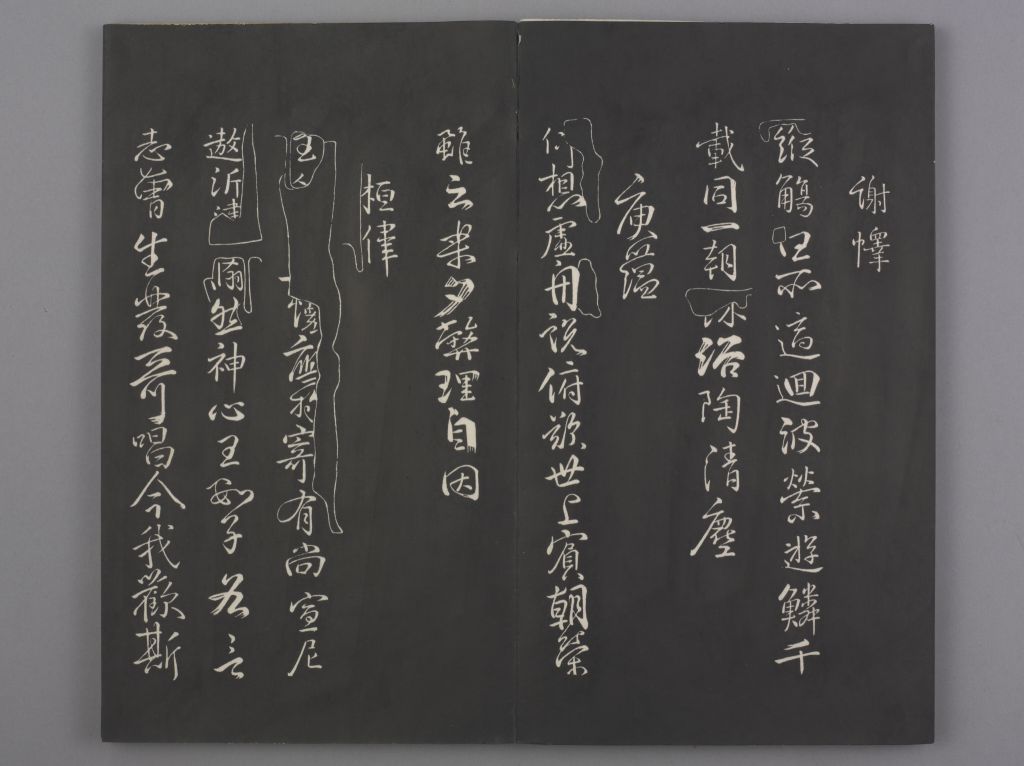 謝懌
縱觴任所適迴波縈遊鱗千
載同一朝沐浴陶清塵
庾蘊
仰想虛舟說俯歎世上賓朝榮
雖云樂夕斃理自因
桓偉
主人懷應物寄有尚宣尼
遨沂津蕭然神心王數子各言
志曾生發奇唱今我歡斯